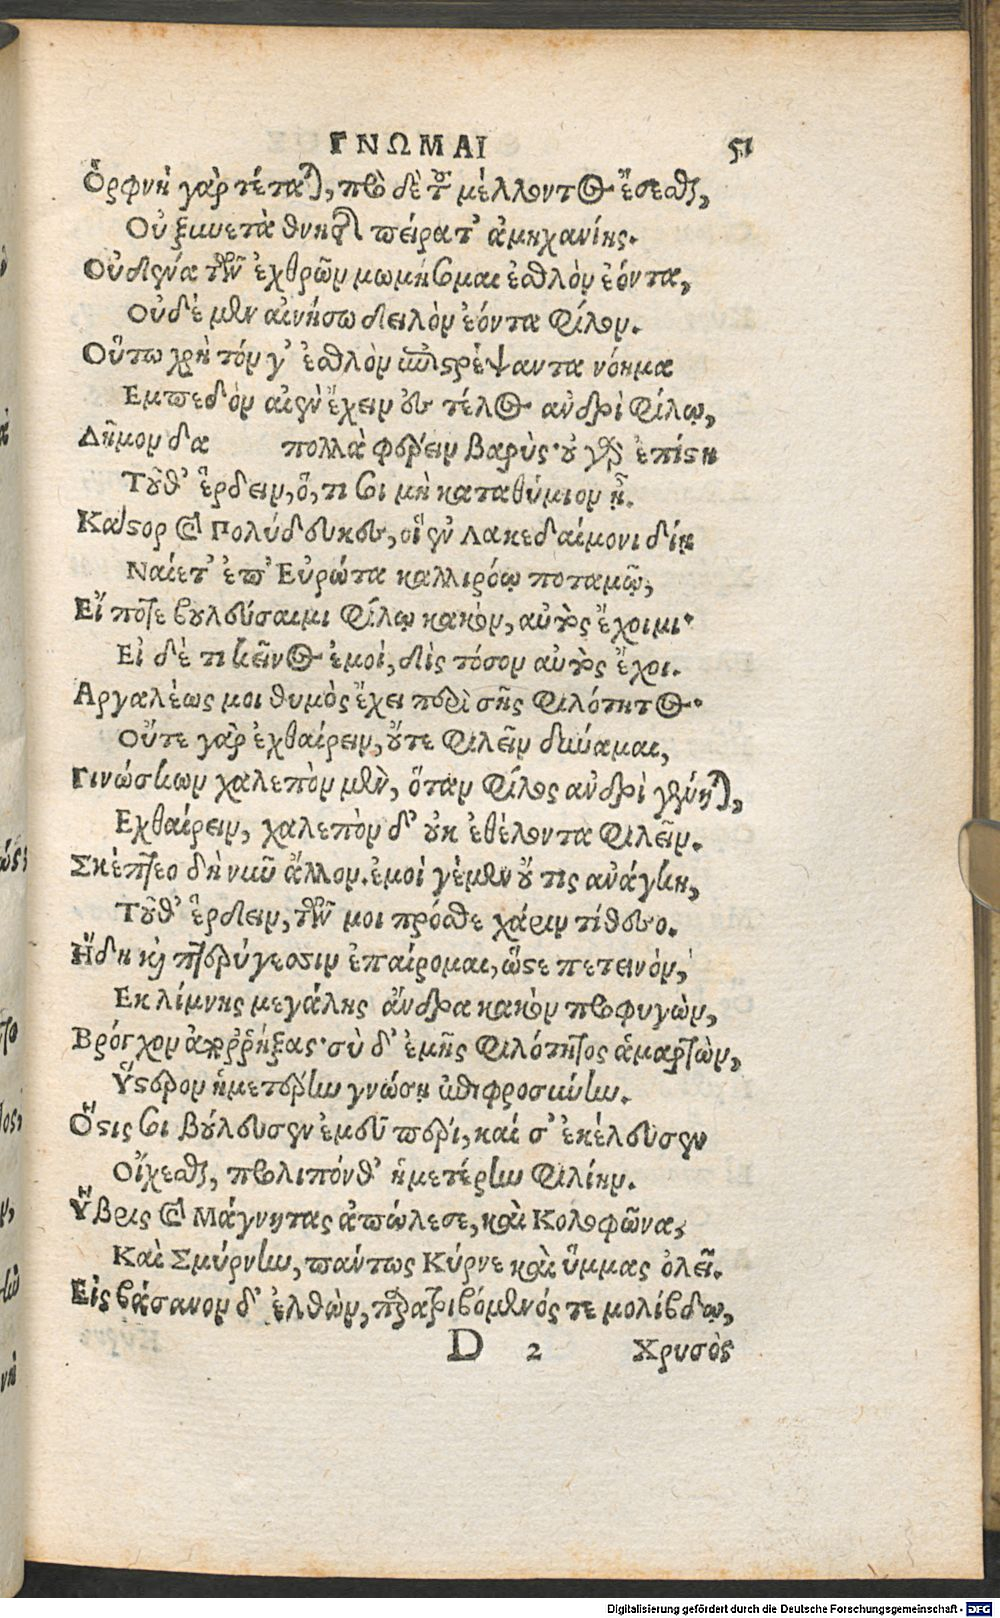 ΓΝΩΜΑΙ 51
Ὄρφνη γὰρ τέταται, πρὸ δὲ τοῦ μέλλοντος ἔσεσθαι,
Οὐ ξυνετὰ θνητοῖς πείρατ' ἀμηχανίης.
Οὐδένα τῶν ἐχθρῶν μωμήσομαι ἐσθλὸν ἐόντα,
Οὐδὲ μὲν αἰνήσω δειλὸν ἐόντα φίλον.
Οὕτω χρὴ τόν γ' ἐσθλὸν ἐπιστρέψαντα νόημα
Εμπεδὸν αἰὲν ἔχειν ἐς τέλος ἀνδρὶ φίλῳ,
Δῆμον δα πολλὰ φέρειν βαρὺς· οὐ γὰρ ἐπίστη
Τοῦθ' ἕρδειν, ὅ, τι σοι μὴ καταθύμιον ᾖ.
Κάστορ καὶ Πολύδευκες, οἳ ἐν Λακεδαίμονι δίῃ
Ναίετ' ἐπ' Εὐρώτα καλλιρόῳ ποταμῷ,
Εἴ ποτε βουλεύσαιμι φίλῳ κακὸν, αὐτὸς ἔχοιμι·
Εἰ δέ τι κεῖνος ἐμοί, δὶς τόσον αὐτὸς ἔχοι.
Αργαλέως μοι θυμὸς ἔχει περὶ σῆς φιλότητος·
Οὔτε γὰρ ἐχθαίρειν, οὔτε φιλεῖν δύναμαι,
Γινώσκων χαλεπὸν μὲν, ὅταν φίλος ἀνδρὶ γένηται,
Εχθαίρειν, χαλεπὸν δ' οὐκ ἐθέλοντα φιλεῖν.
Σκέπτεο δὴ νῦν ἄλλον. ἐμοί γέ μὲν οὔ τις ἀνάγκη,
Τοῦθ' ἕρδειν, τῶν μοι πρόσθε χάριν τίθεσο.
Ἤδη καὶ πτερύγεσσιν ἐπαίρομαι, ὥστε πετεινὸν,
Εκ λίμνης μεγάλης ἄνδρα κακὸν προφυγὼν,
Βρόγχον ἀπορρήξας· σὺ δ' ἐμῆς φιλότητος ἁμαρτὼν,
Ὕστερον ἡμετέρην γνώσῃ ἐπιφροσύνην.
Ὅστις σοι βούλευσεν ἐμεῦ περὶ, καί σ' ἐκέλευσεν
Οἴχεσθαι, προλιπόνθ' ἡμετέρην φιλίην.
Ὕβρις καὶ Μάγνητας ἀπώλεσε, καὶ Κολοφῶνα,
Καὶ Σμύρνην, πάντως Κύρνε καὶ ὔμμας ὀλεῖ.
Εἰς βάσανον δ' ἐλθὼν, παρατριβόμενός τε μολίβδῳ,
D 2 Χρυσὸς
Digitalisierung gefördert durch die Deutsche Forschungsgemeinschaft - DFG